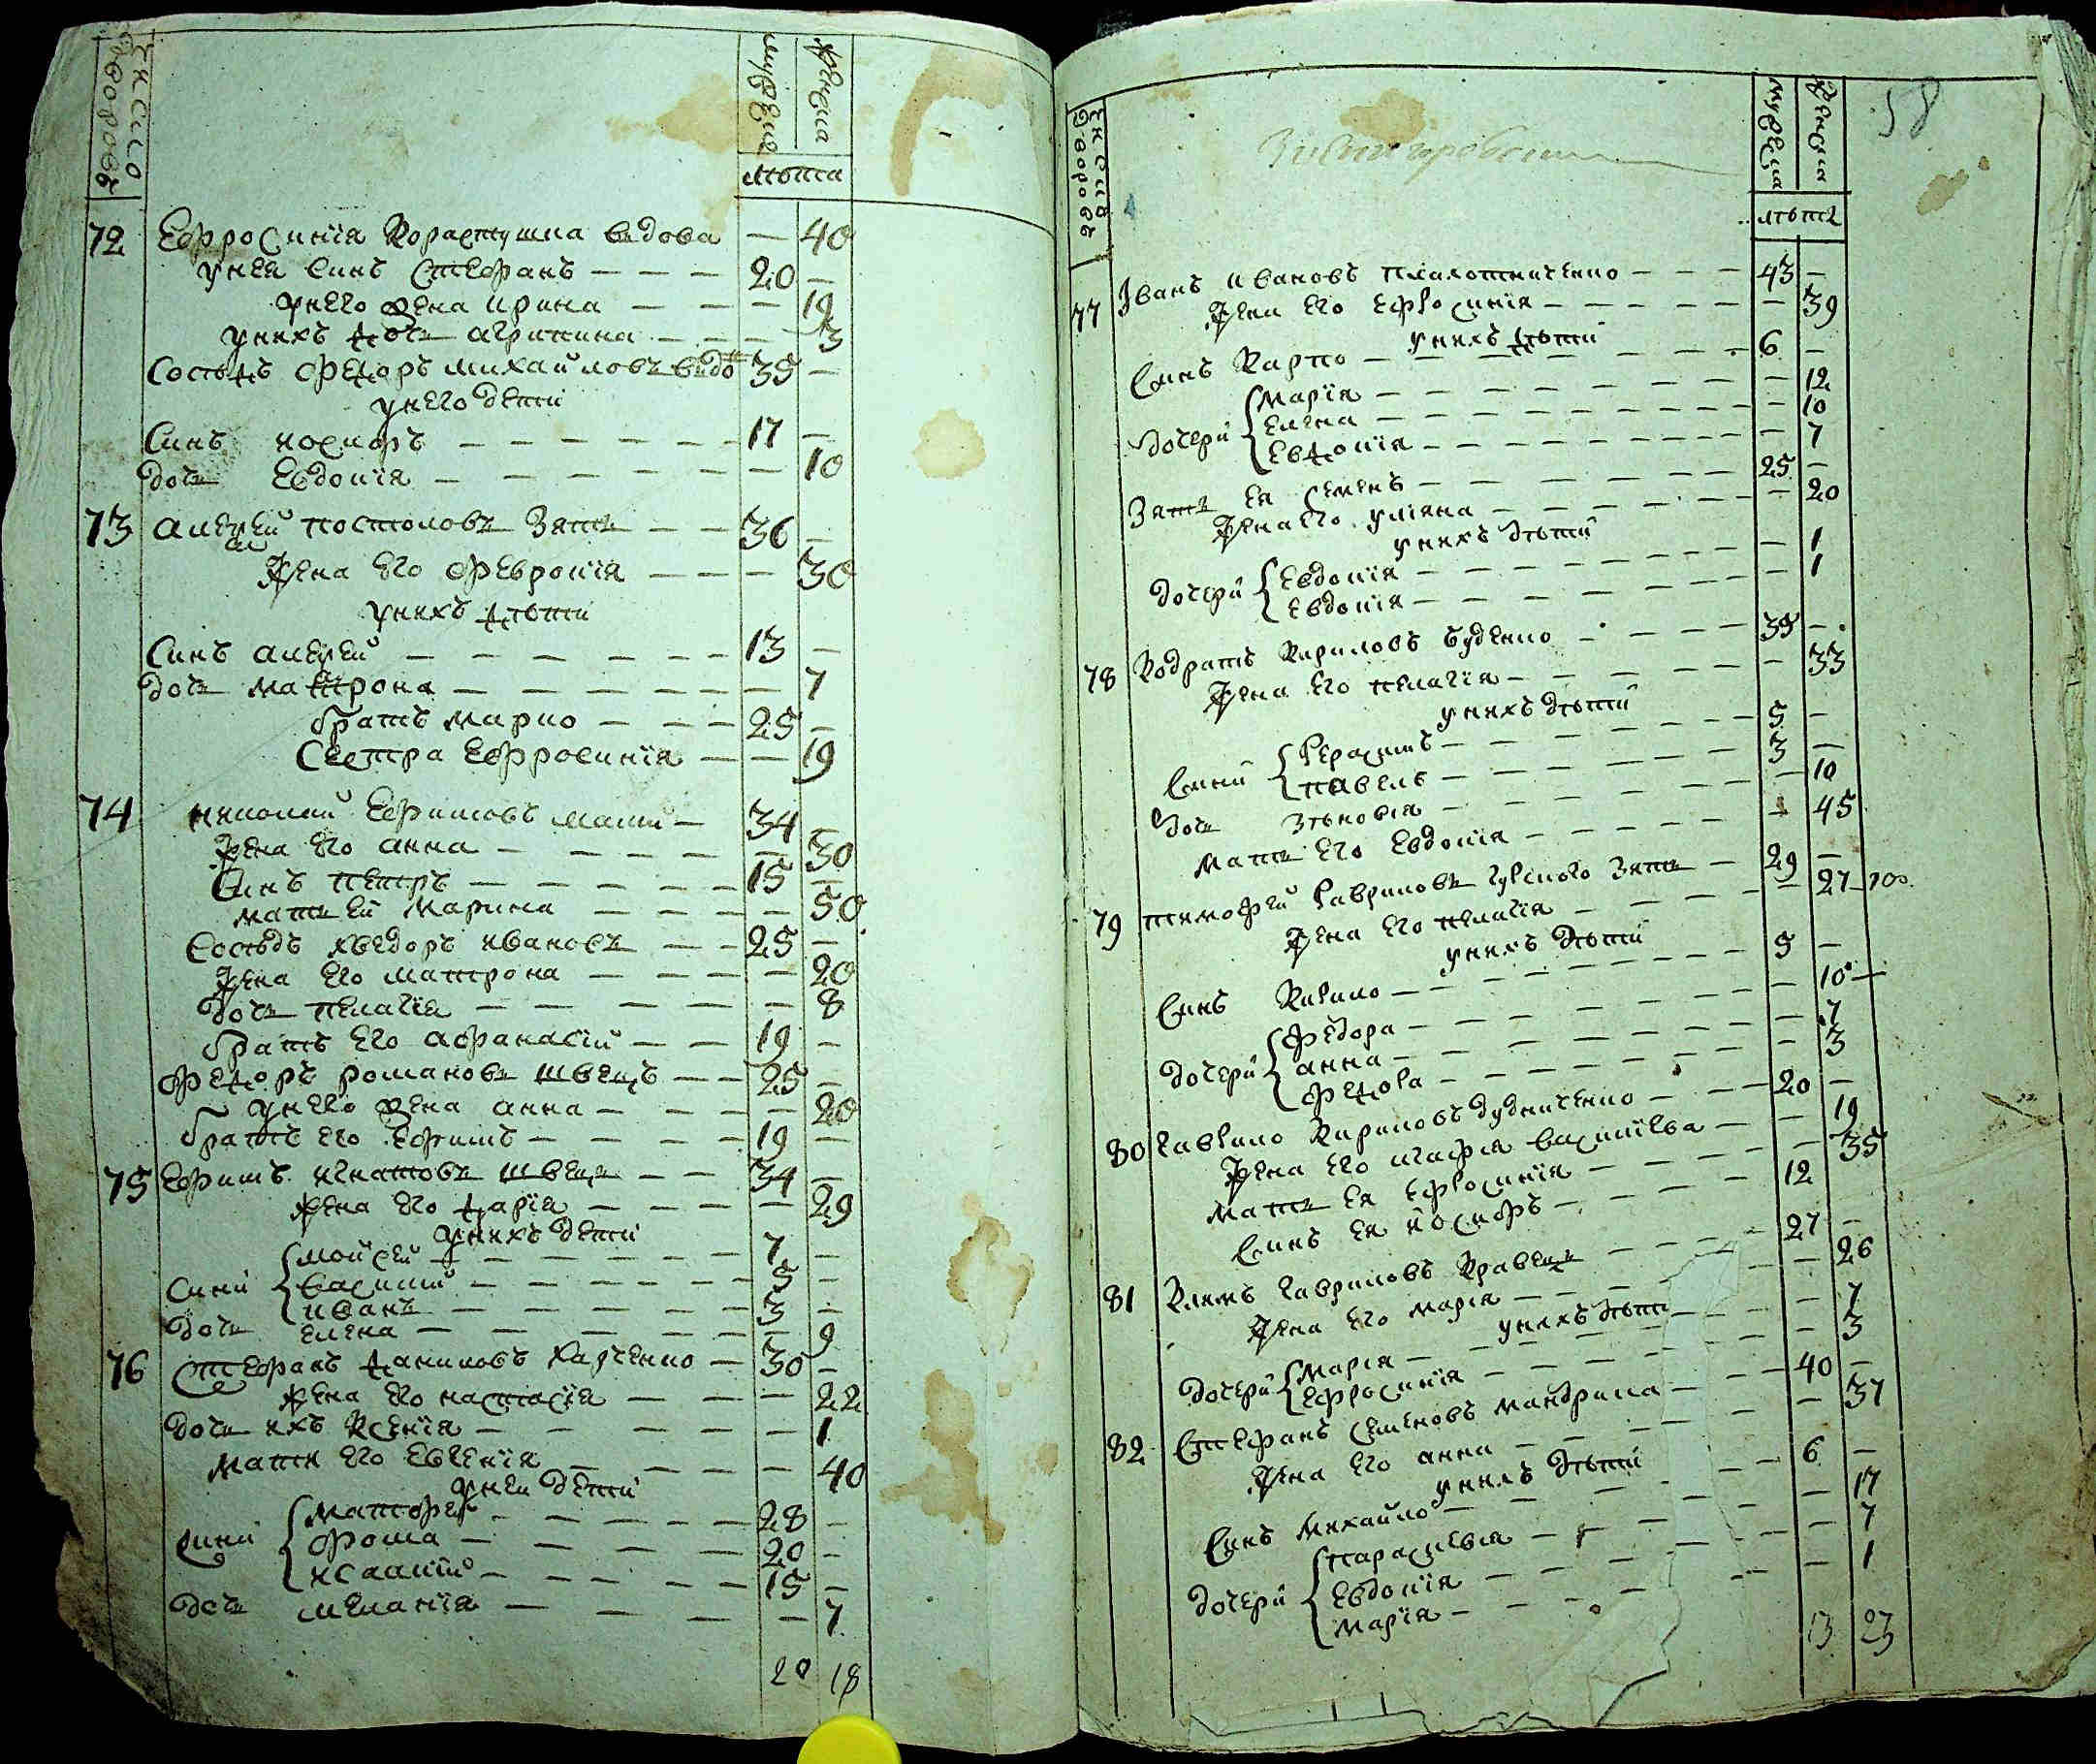 число дворовъ
мужеска
женска
лѣта
72 Ефросинїя Корастушна вдова — 40
унея синъ Стефанъ — — — 20 —
унего жена ирина — — — 19
унихъ дочь агрипина — — — 3
Сосѣдъ Феодоръ михайловъ вдо 35 —
унего дѣти
Синъ никифоръ — — — 17 —
дочь Евдокїя — — — 10
73 алеѯей постоловъ зять — — 36 —
Жена его февронїя — — — 30
унихъ дѣти
Синъ алеѯей — — — 13 —
дочь матрона — — — 7
братъ марко — — — 25 —
Сестра Ефросинїя — — 19
74 николай Ефимовъ — 34 —
Жена его анна — — — 30
Синъ петръ — — — 15 —
мать ей марина — — — 50
Сосѣдъ хведоръ ивановъ — — 25 —
Жена его матрона — — — 20
дочь пелагїя — — — 8
братъ его афанасїй — — 19 —
Феодоръ романовъ швецъ — — 25 —
унего жена анна — — — 20
братъ его Ефимъ — — — 19 —
75 Ефимъ игнатовъ швецъ — — 34 —
жена его дарїя — — — 29
унихъ дѣти
Сини мойсей — — — 7 —
василїй — — — 5 —
иванъ — — — 3 —
дочь елена — — — 9
76 Стефанъ даниловъ Харченко — 30 —
жена его настасїя — — — 22
дочь ихъ Ксенїя — — — 1
мати его Евгенїя — — — 40
унеи дѣти
Сини матфей — — — 28 —
фома — — — 20 —
исаакїй — — — 15 —
дочь меланїя — — — 7
20 18
58
число дворовъ
мужеска
женска
лѣта
77 Иванъ ивановъ — — — 43 —
Жена его Ефросинїя — — — 39
унихъ дѣти
Синъ Карпо — — — 6 —
дочери марїя — — — 12
Елена — — — 10
Евдокїя — — — 7
Зять Ея Семенъ — — — 25 —
Жена его улїяна — — — 20
унихъ дѣти
дочери Евдокїя — — — 1
Евдокїя — — — 1
78 Кодратъ Кириловъ — — — 35 —
Жена его пелагїя — — — 33
унихъ дѣти
Сини Герасимъ — — — 5 —
павелъ — — — 3 —
дочь Зѣновїя — — — 10
мать его Евдокїя — — — 45
79 тимофей Гавриловъ зять — 29 —
Жена его пелагїя — — — 27
унихъ дѣти
Синъ Кирило — — — 5 —
дочери Федора — — — 10
анна — — — 7
— — — 3
80 Гаврило Кириловъ Дудниченко — — 20 —
Жена его агафїя василїева — 19
мать Ея Ефросинїя — — — 35
Синъ Ея никифоръ — — — 12
81 Климъ Гавриловъ Кравецъ — — — 27 —
Жена его марїя — — — 26
унихъ дѣти
дочери марїя — — — 7
Ефросинїя — — — 3
82 Стефанъ Семеновъ мандрика — — 40 —
Жена его анна — — — 37
унихъ дѣти
Синъ михайло — — — 6 —
дочери параскевїя — — — 17
Евдокїя — — — 7
марїя — — — 1
13 23